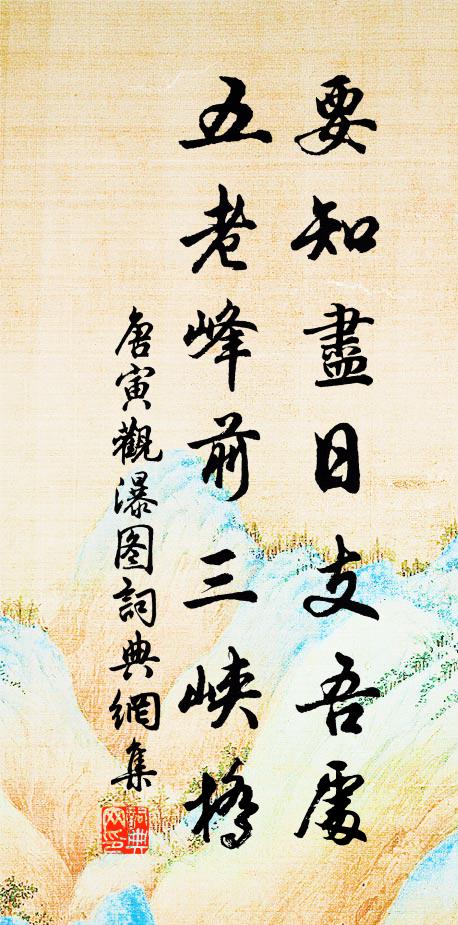 要知盡日支吾處
五老峰前三峽橋
唐寅觀瀑图詞典網集
詞典網印